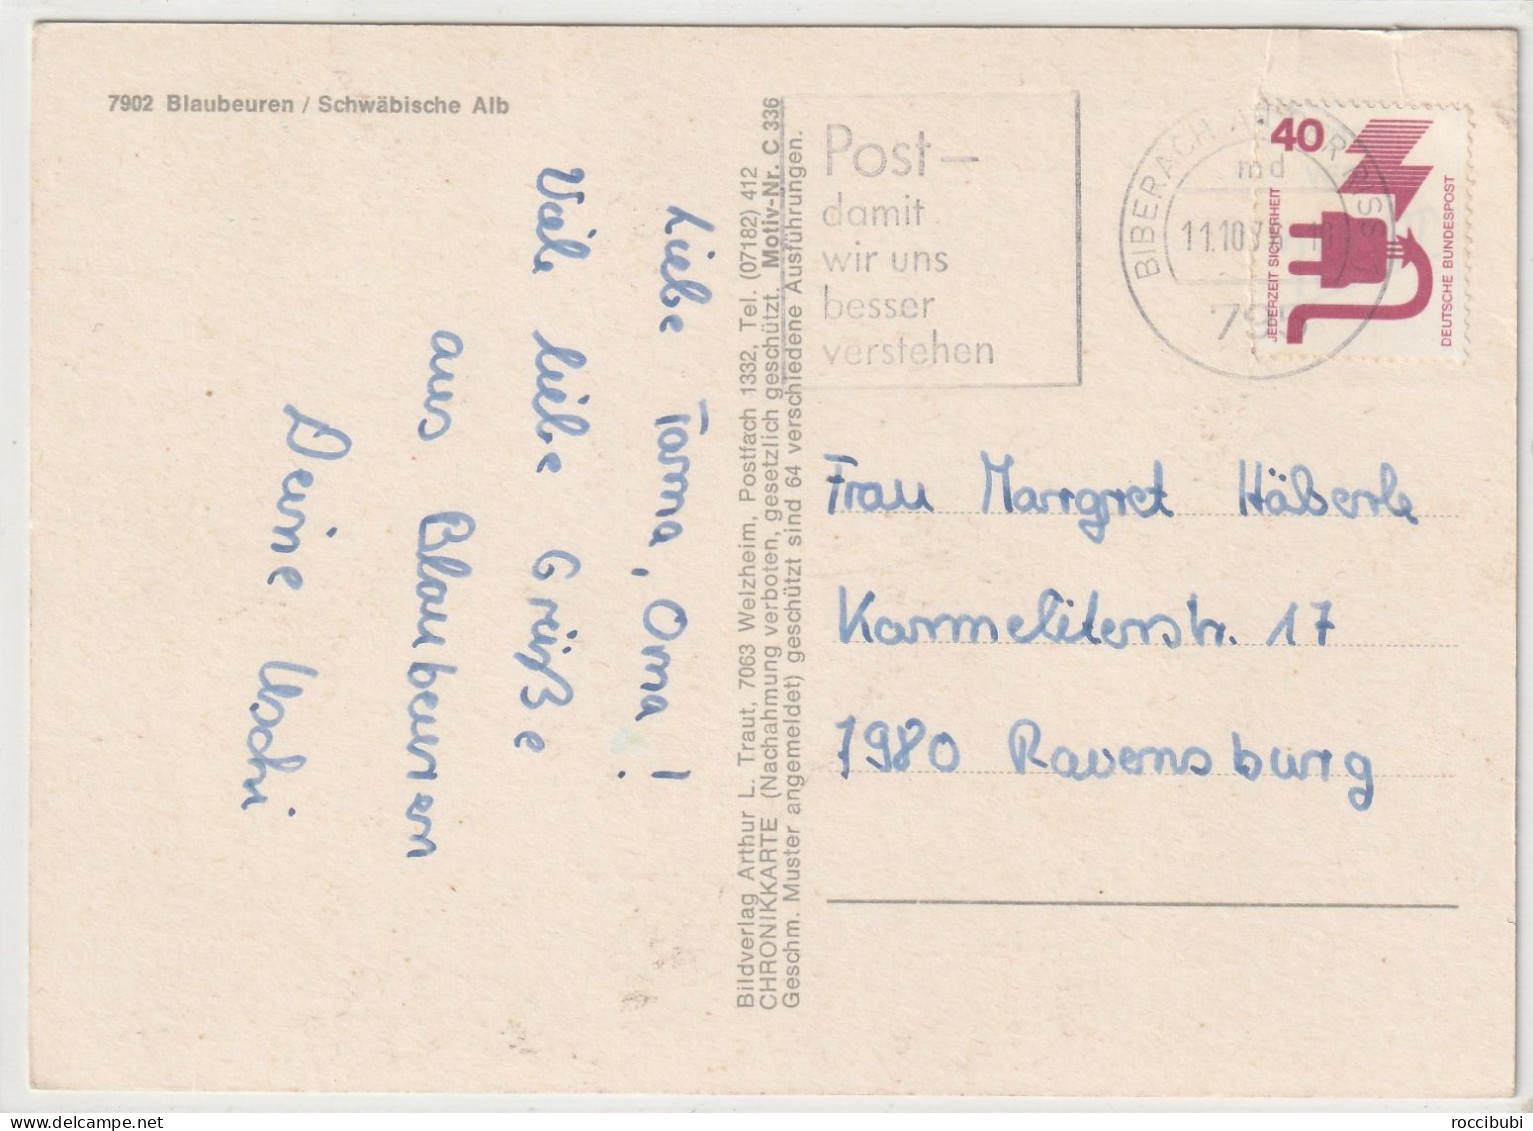 7902 Blaubeuren / Schwäbische Alb
Liebe Tama, Oma!
Viele liebe Grüße
aus Blaubeuren
Deine Uschi
Bildverlag Arthur L. Traut, 7063 Welzheim, Postfach 1332, Tel. (07182) 412
CHRONIKKARTE (Nachahmung verboten, gesetzlich geschützt. Motiv-Nr. C 336
Geschm. Muster angemeldet) geschützt sind 64 verschiedene Ausführungen.
Post–
damit
wir uns
besser
verstehen
BIBERACH AN DER RISS 1
md
11.10.7
795
40
JEDERZEIT SICHERHEIT
DEUTSCHE BUNDESPOST
Frau Margret Häberle
Karmeliterstr. 17
7980 Ravensburg
roccibubi